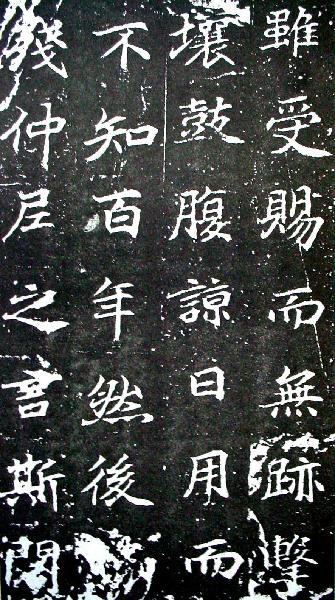 雖受賜而無跡擊
壤鼓腹諒日用而
不知百年然後
仲尼之言斯